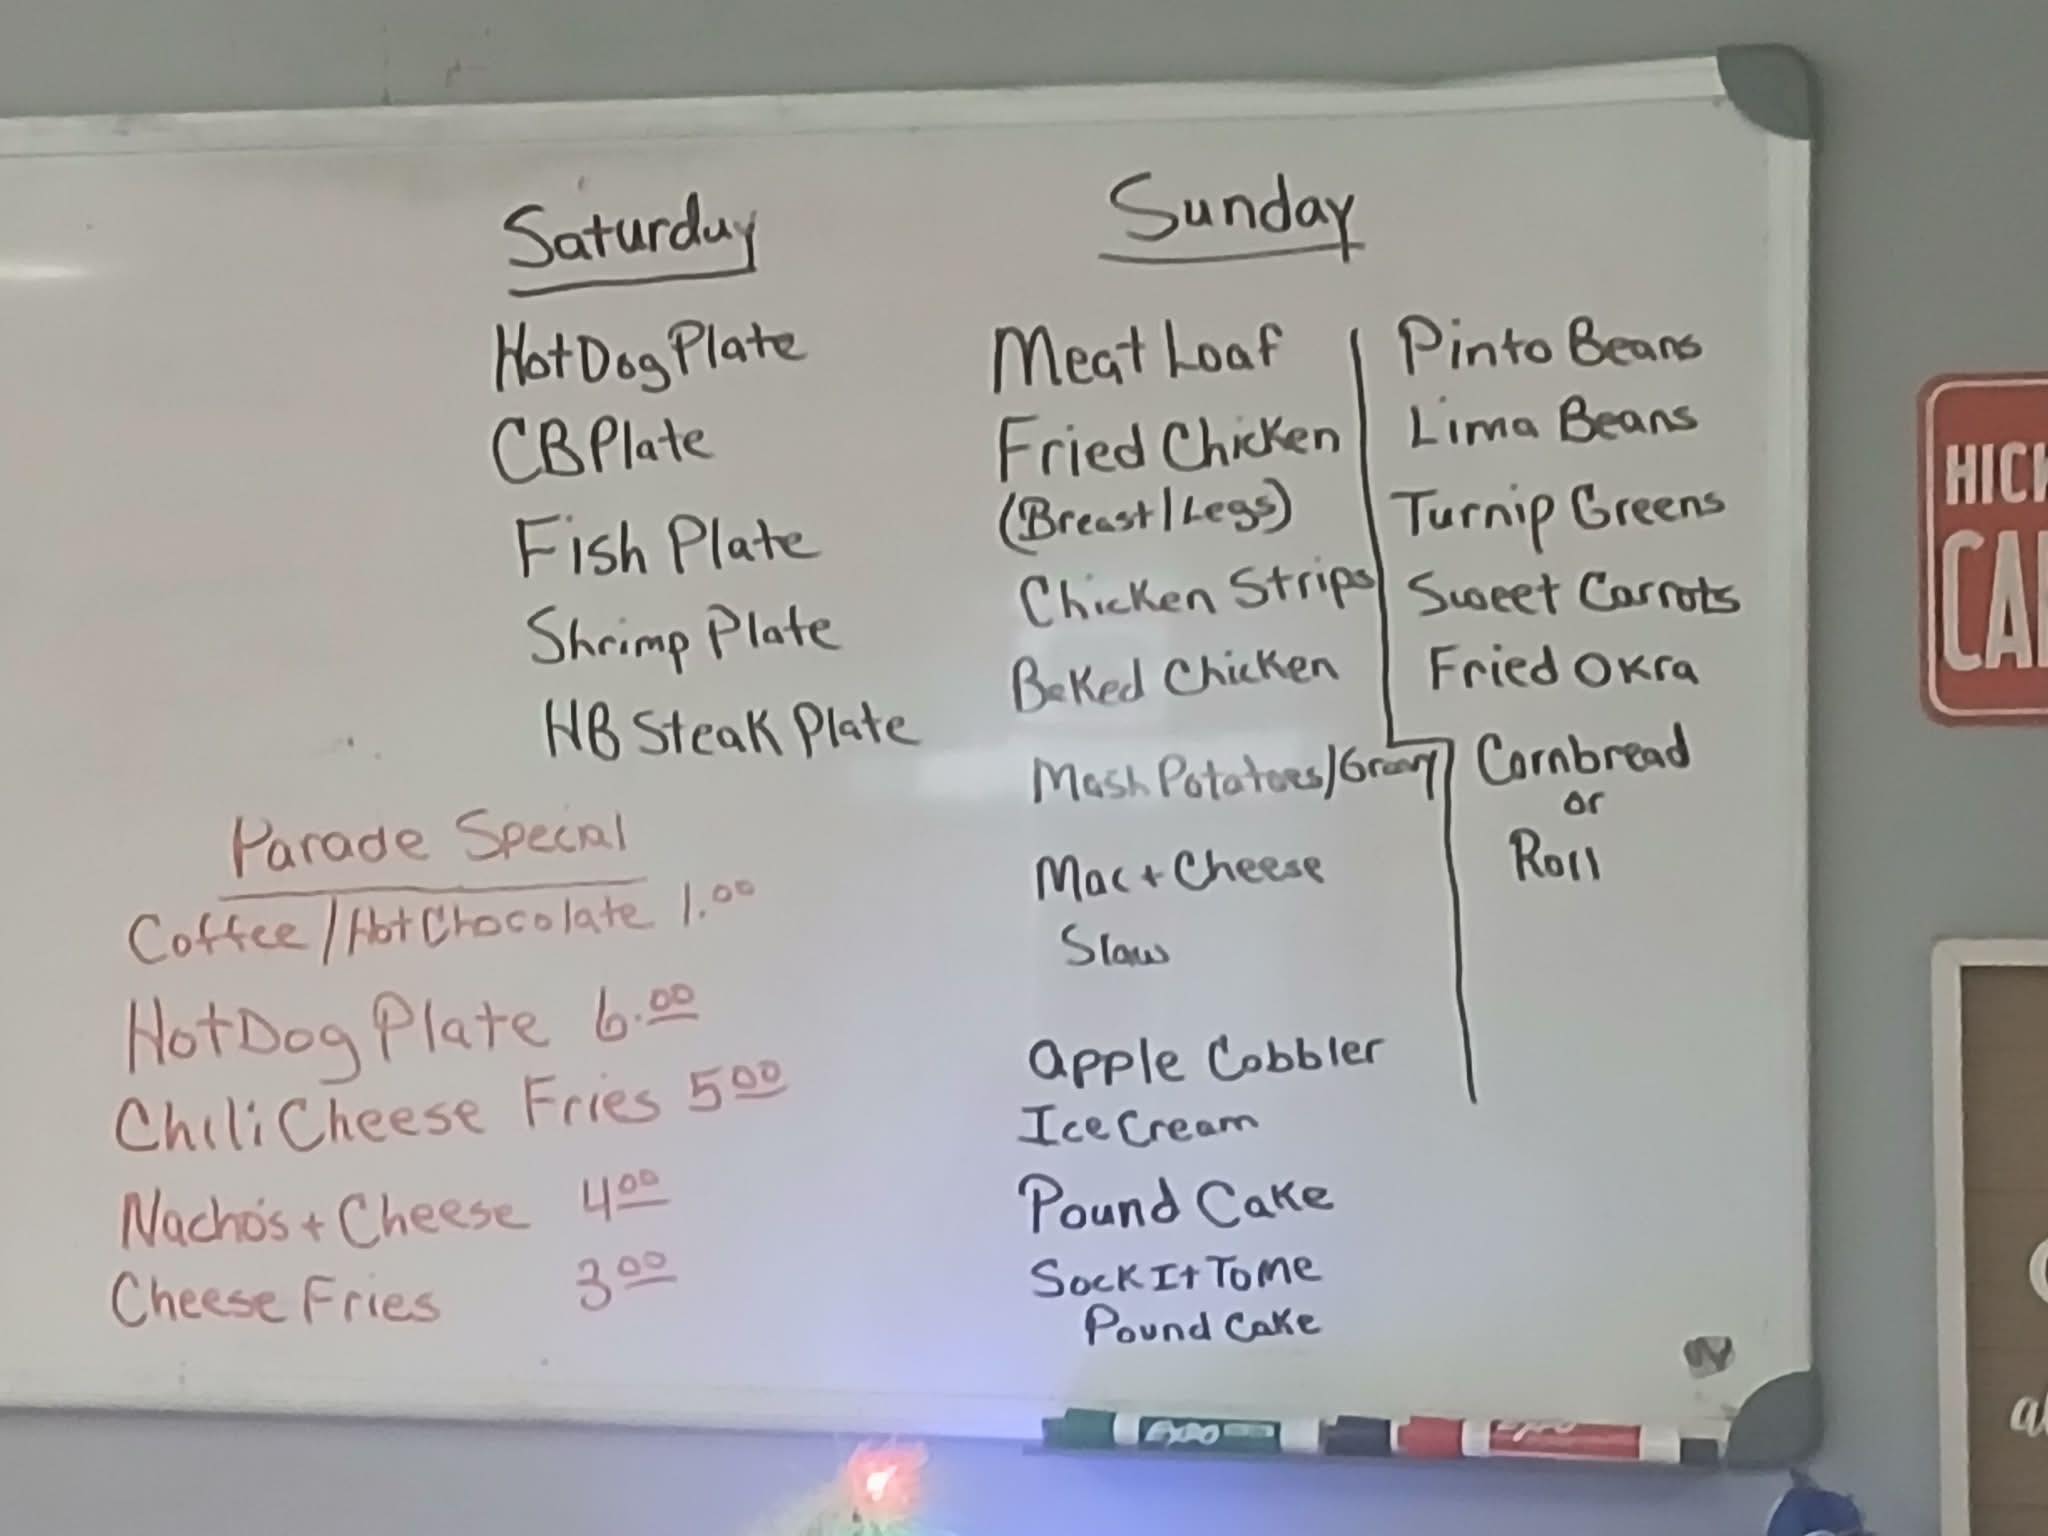 Saturday
HotDog Plate
CB Plate
Fish Plate
Shrimp Plate
HB Steak Plate
Parade Special
Coffee/Hot Chocolate 1.00
HotDog Plate 6.00
Chili Cheese Fries 5 00
Nacho's + Cheese 4 00
Cheese Fries 3 00
Sunday
Meat Loaf
Fried Chicken
(Breast/Legs)
Chicken Strips
Baked Chicken
Mash Potatoes/Gravy
Mac + Cheese
Slaw
Apple Cobbler
Ice Cream
Pound Cake
Sock It To Me
Pound Cake
Pinto Beans
Lima Beans
Turnip Greens
Sweet Carrots
Fried Okra
Cornbread
or
Roll
EXPO